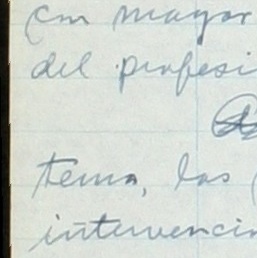 con mayor
del profesi
tema, las
intervenció